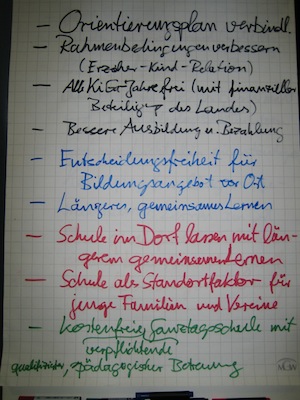 — Orientierungsplan verbindl.
— Rahmenbedingungen verbessern
(Erzieher-Kind-Relation)
— Alle KiGa-Jahre frei (mit finanzieller
Beteiligung des Landes)
— Bessere Ausbildung u. Bezahlung
— Entscheidungsfreiheit für
Bildungsangebot vor Ort
— Längeres, gemeinsames Lernen
— Schule im Dorf lassen mit län-
gerem gemeinsamen Lernen
— Schule als Standortfaktor für
junge Familien und Vereine
— Kostenfreie Ganztagsschule mit
verpflichtende
qualifizierter, pädagogischer Betreuung